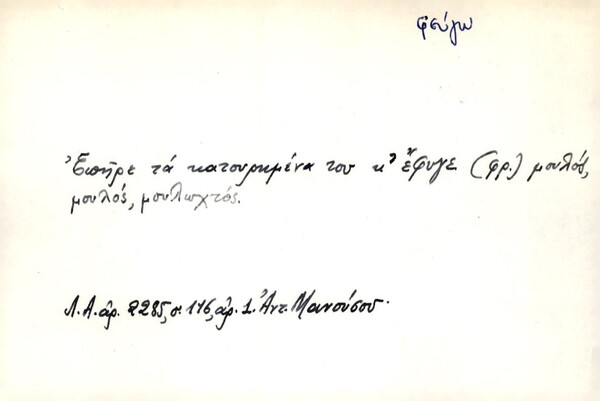 φεύγω
Ἐπῆρε τά κατουρημένα του κ' ἔφυγε (φρ.) μουλός,
μουλός, μουλωχτός.
Λ.Α. ἀρ. 2285, σ. 116, ἀρ. 1. Ἀντ. Μανούσου.